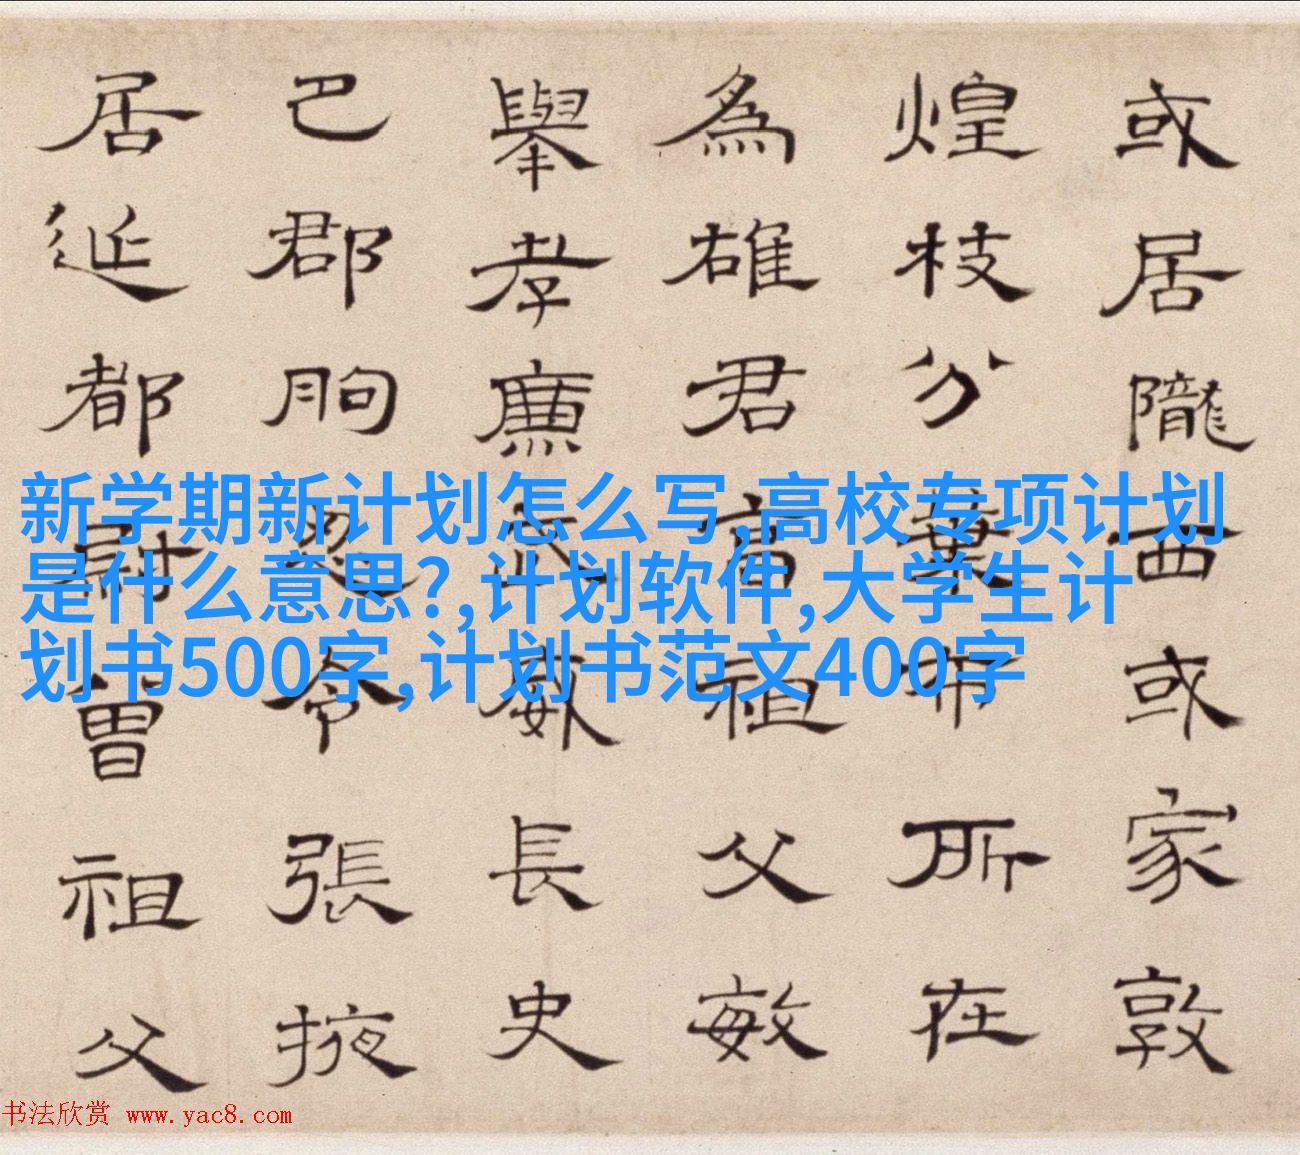 或居隴西或家敦
煌枝分葉布所在
為雄君高祖父敏
舉孝廉武威長史
巴郡朐忍令張掖
居延都尉曾祖父
新学期新计划怎么写,高校专项计划
是什么意思?,计划软件,大学生计
划书500字,计划书范文400字
书法欣赏 www.yac8.com